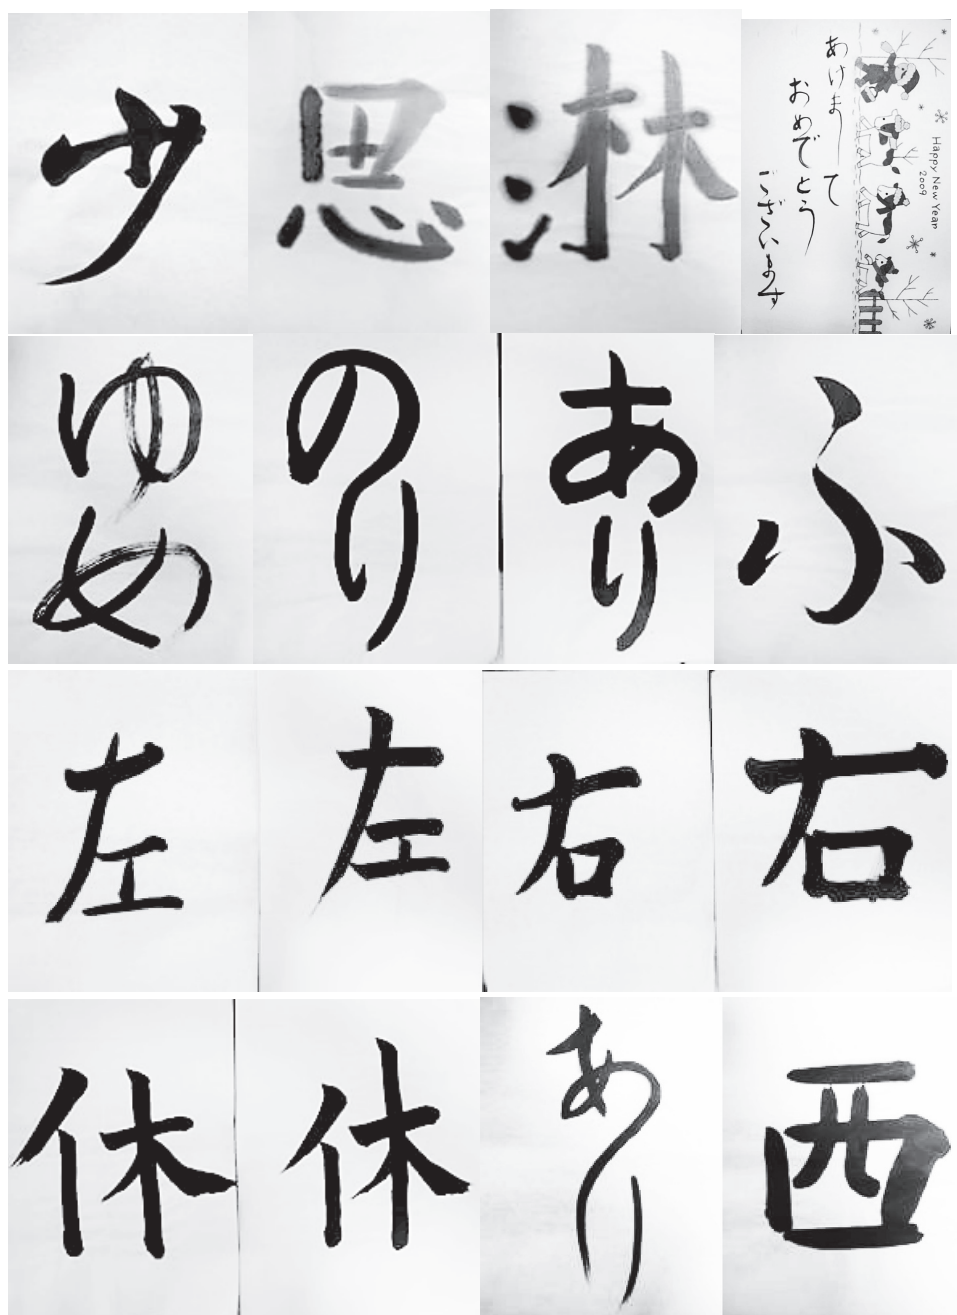 少
思
淋
あけまして
おめでとう
ございます
Happy New Year
2009
ゆめ
のり
あり
ふ
左
左
右
右
休
休
あり
西